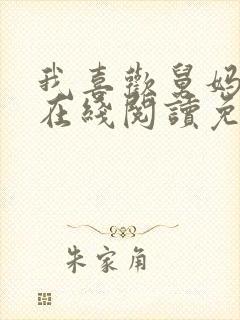 我喜歡舅媽
在綫閱讀免
朱家角